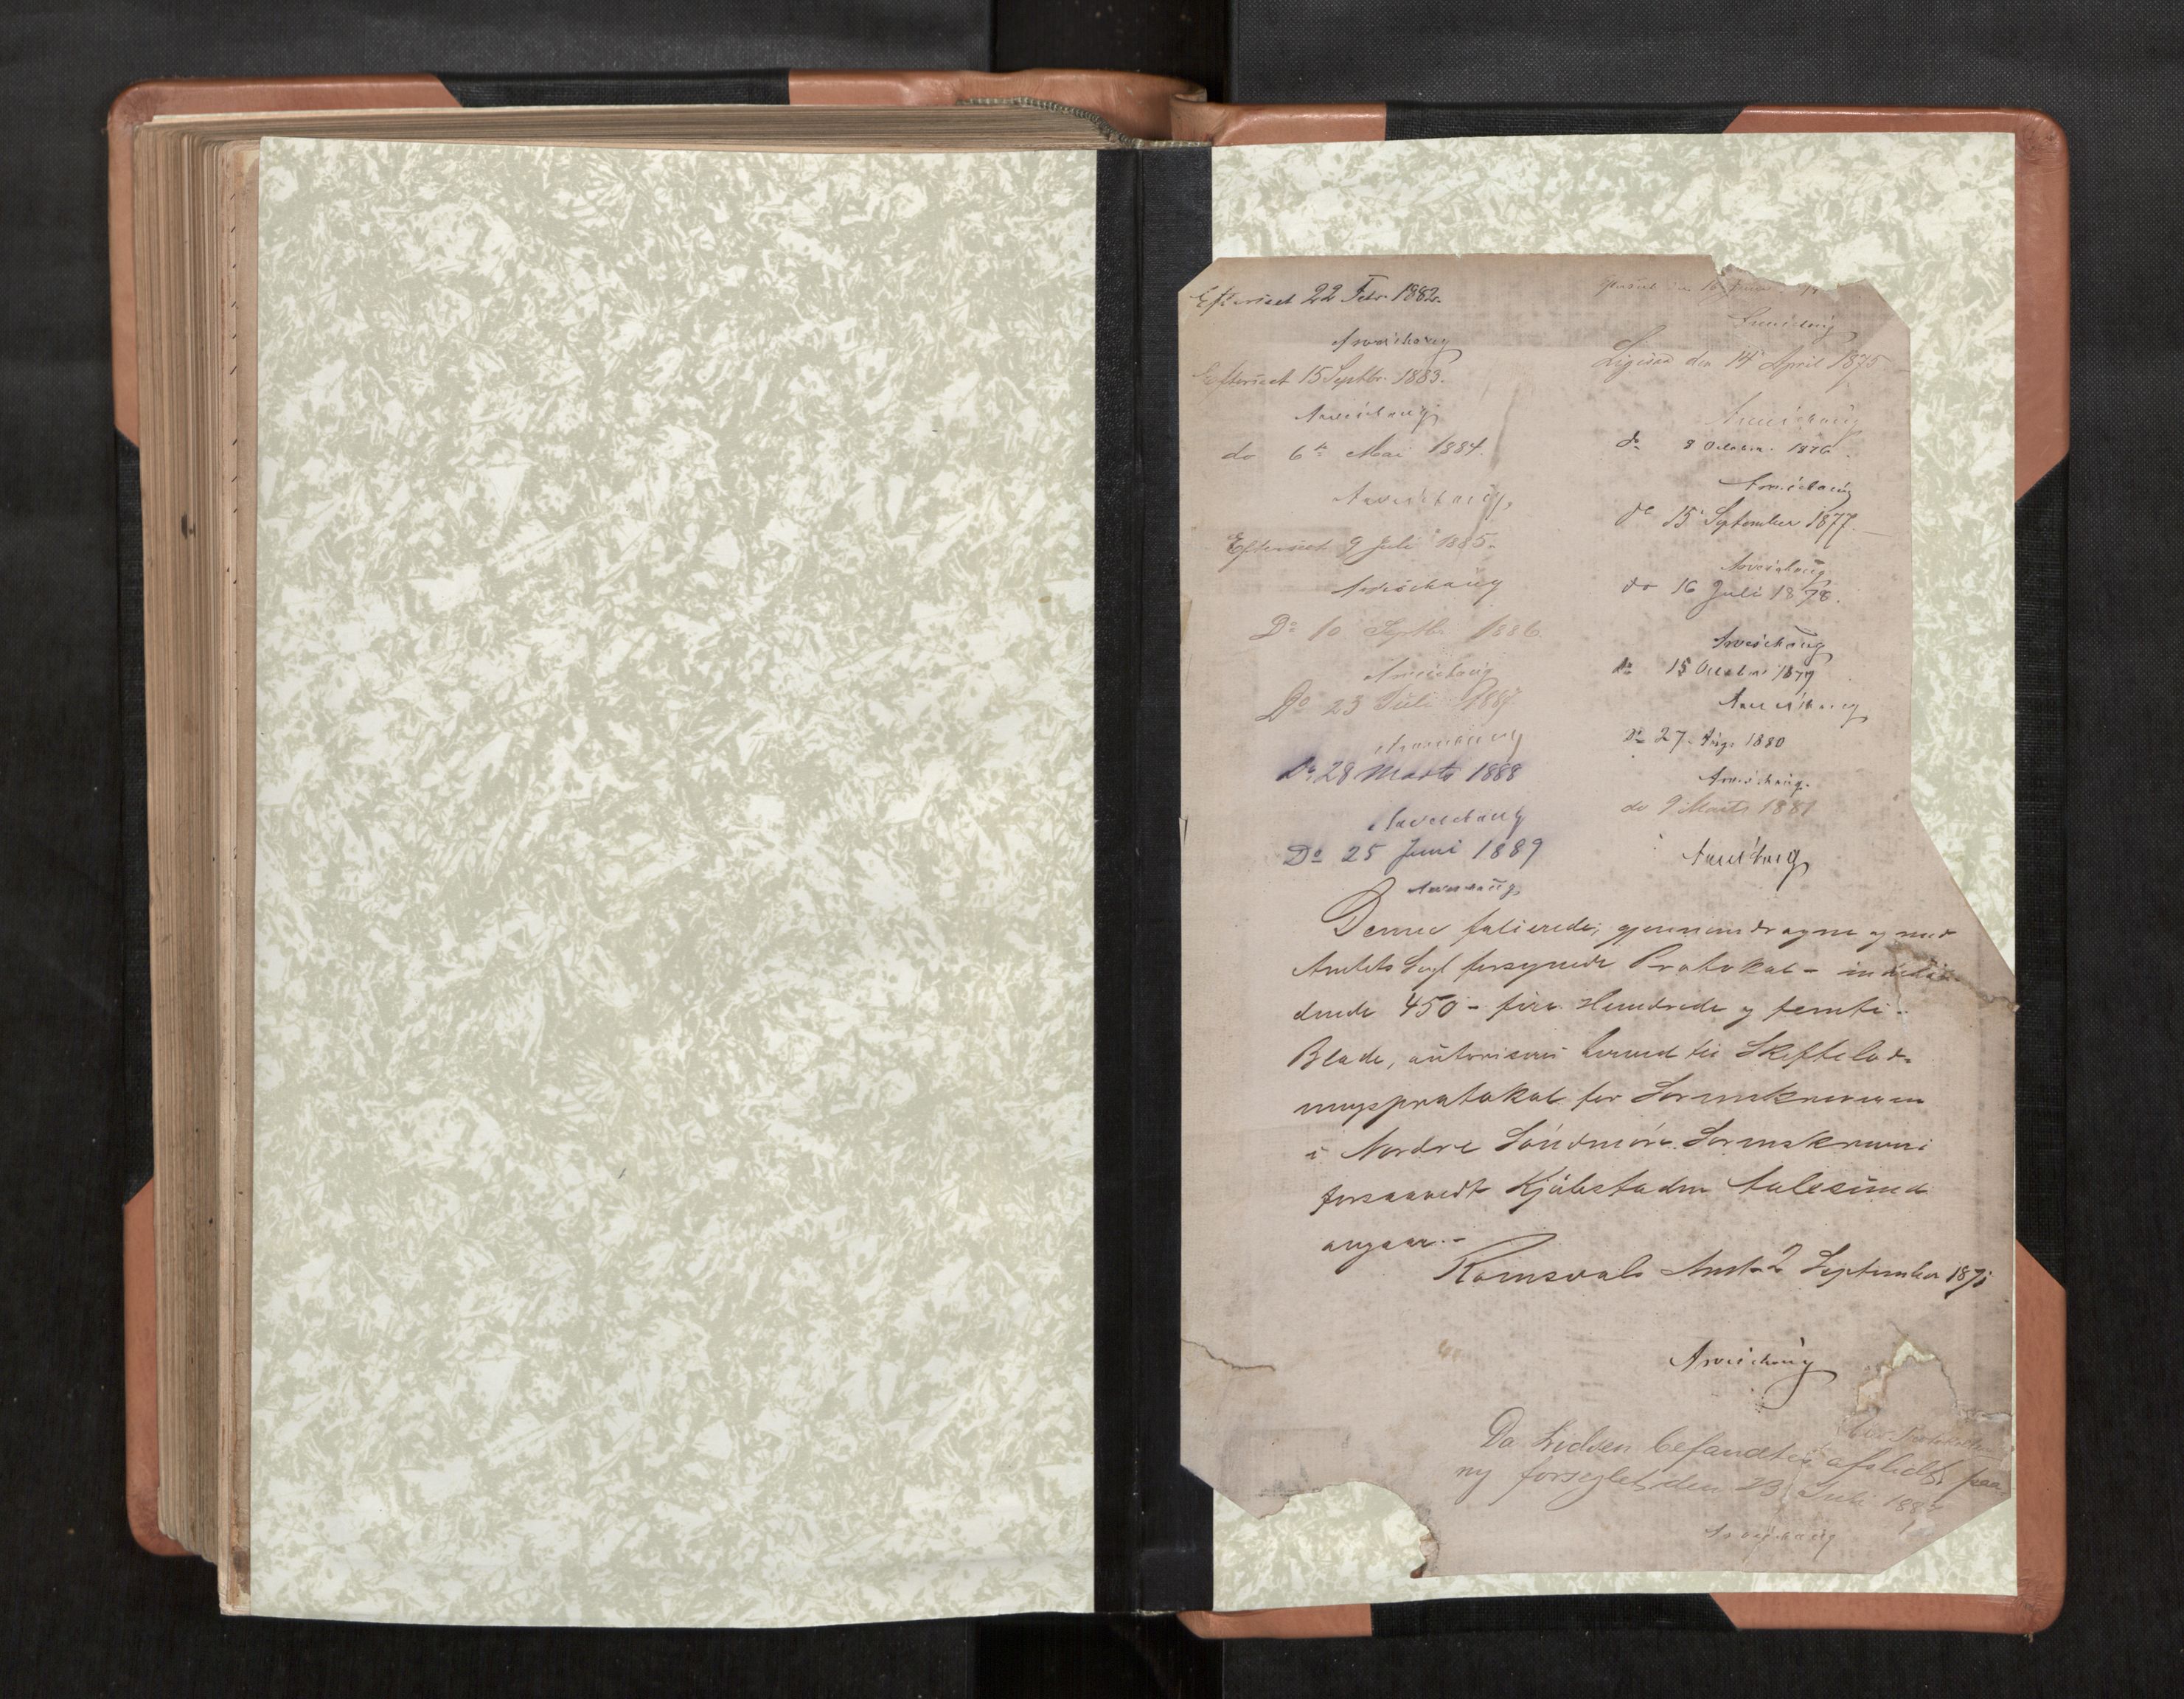 Efterseet 22 Febr. 1882.
Aveschoug
Efterseet 15 Septbr. 1883.
Aveschoug
do 6te Mai 1884.
Aveschoug
Efterseet 9 Juli 1885.
Aveschoug
Do 10 Septb. 1886.
Aveschoug
Do 23 Juli 1887
Aveschoug
Do 28 Marts 1888
Aveschoug
Do 25 Juni 1889
Aveschoug
Aveschoug
Ligesaa den 14 April 1875
Aveschoug
do 8 October 1876.
Aveschoug
do 15 September 1877.
Aveschoug
do 16 Juli 1878.
Aveschoug
do 15 October 1879
Aveschoug
Do 27 Aug. 1880
Aveschoug.
do 9 Marts 1881
Aveschoug
Denne folierede, gjennemdragne og med
Amtets Segl forsynede Protokol - indehol-
dende 450 - fire Hundrede og femti -
Blade, autoriseres herved til Skiftelod-
ningsprotokol for Sorenskriveren
i Nordre Søndmøre Sorenskriveri
forsaavidt Kjøbstaden Aalesund
angaar. -
Romsdals Amt 2 September 187
Aveschoug
blev Protokollen
Da Lidsen befandtes afslidt, paa
ny forseglet den 23 Juli 1887
Aveschoug